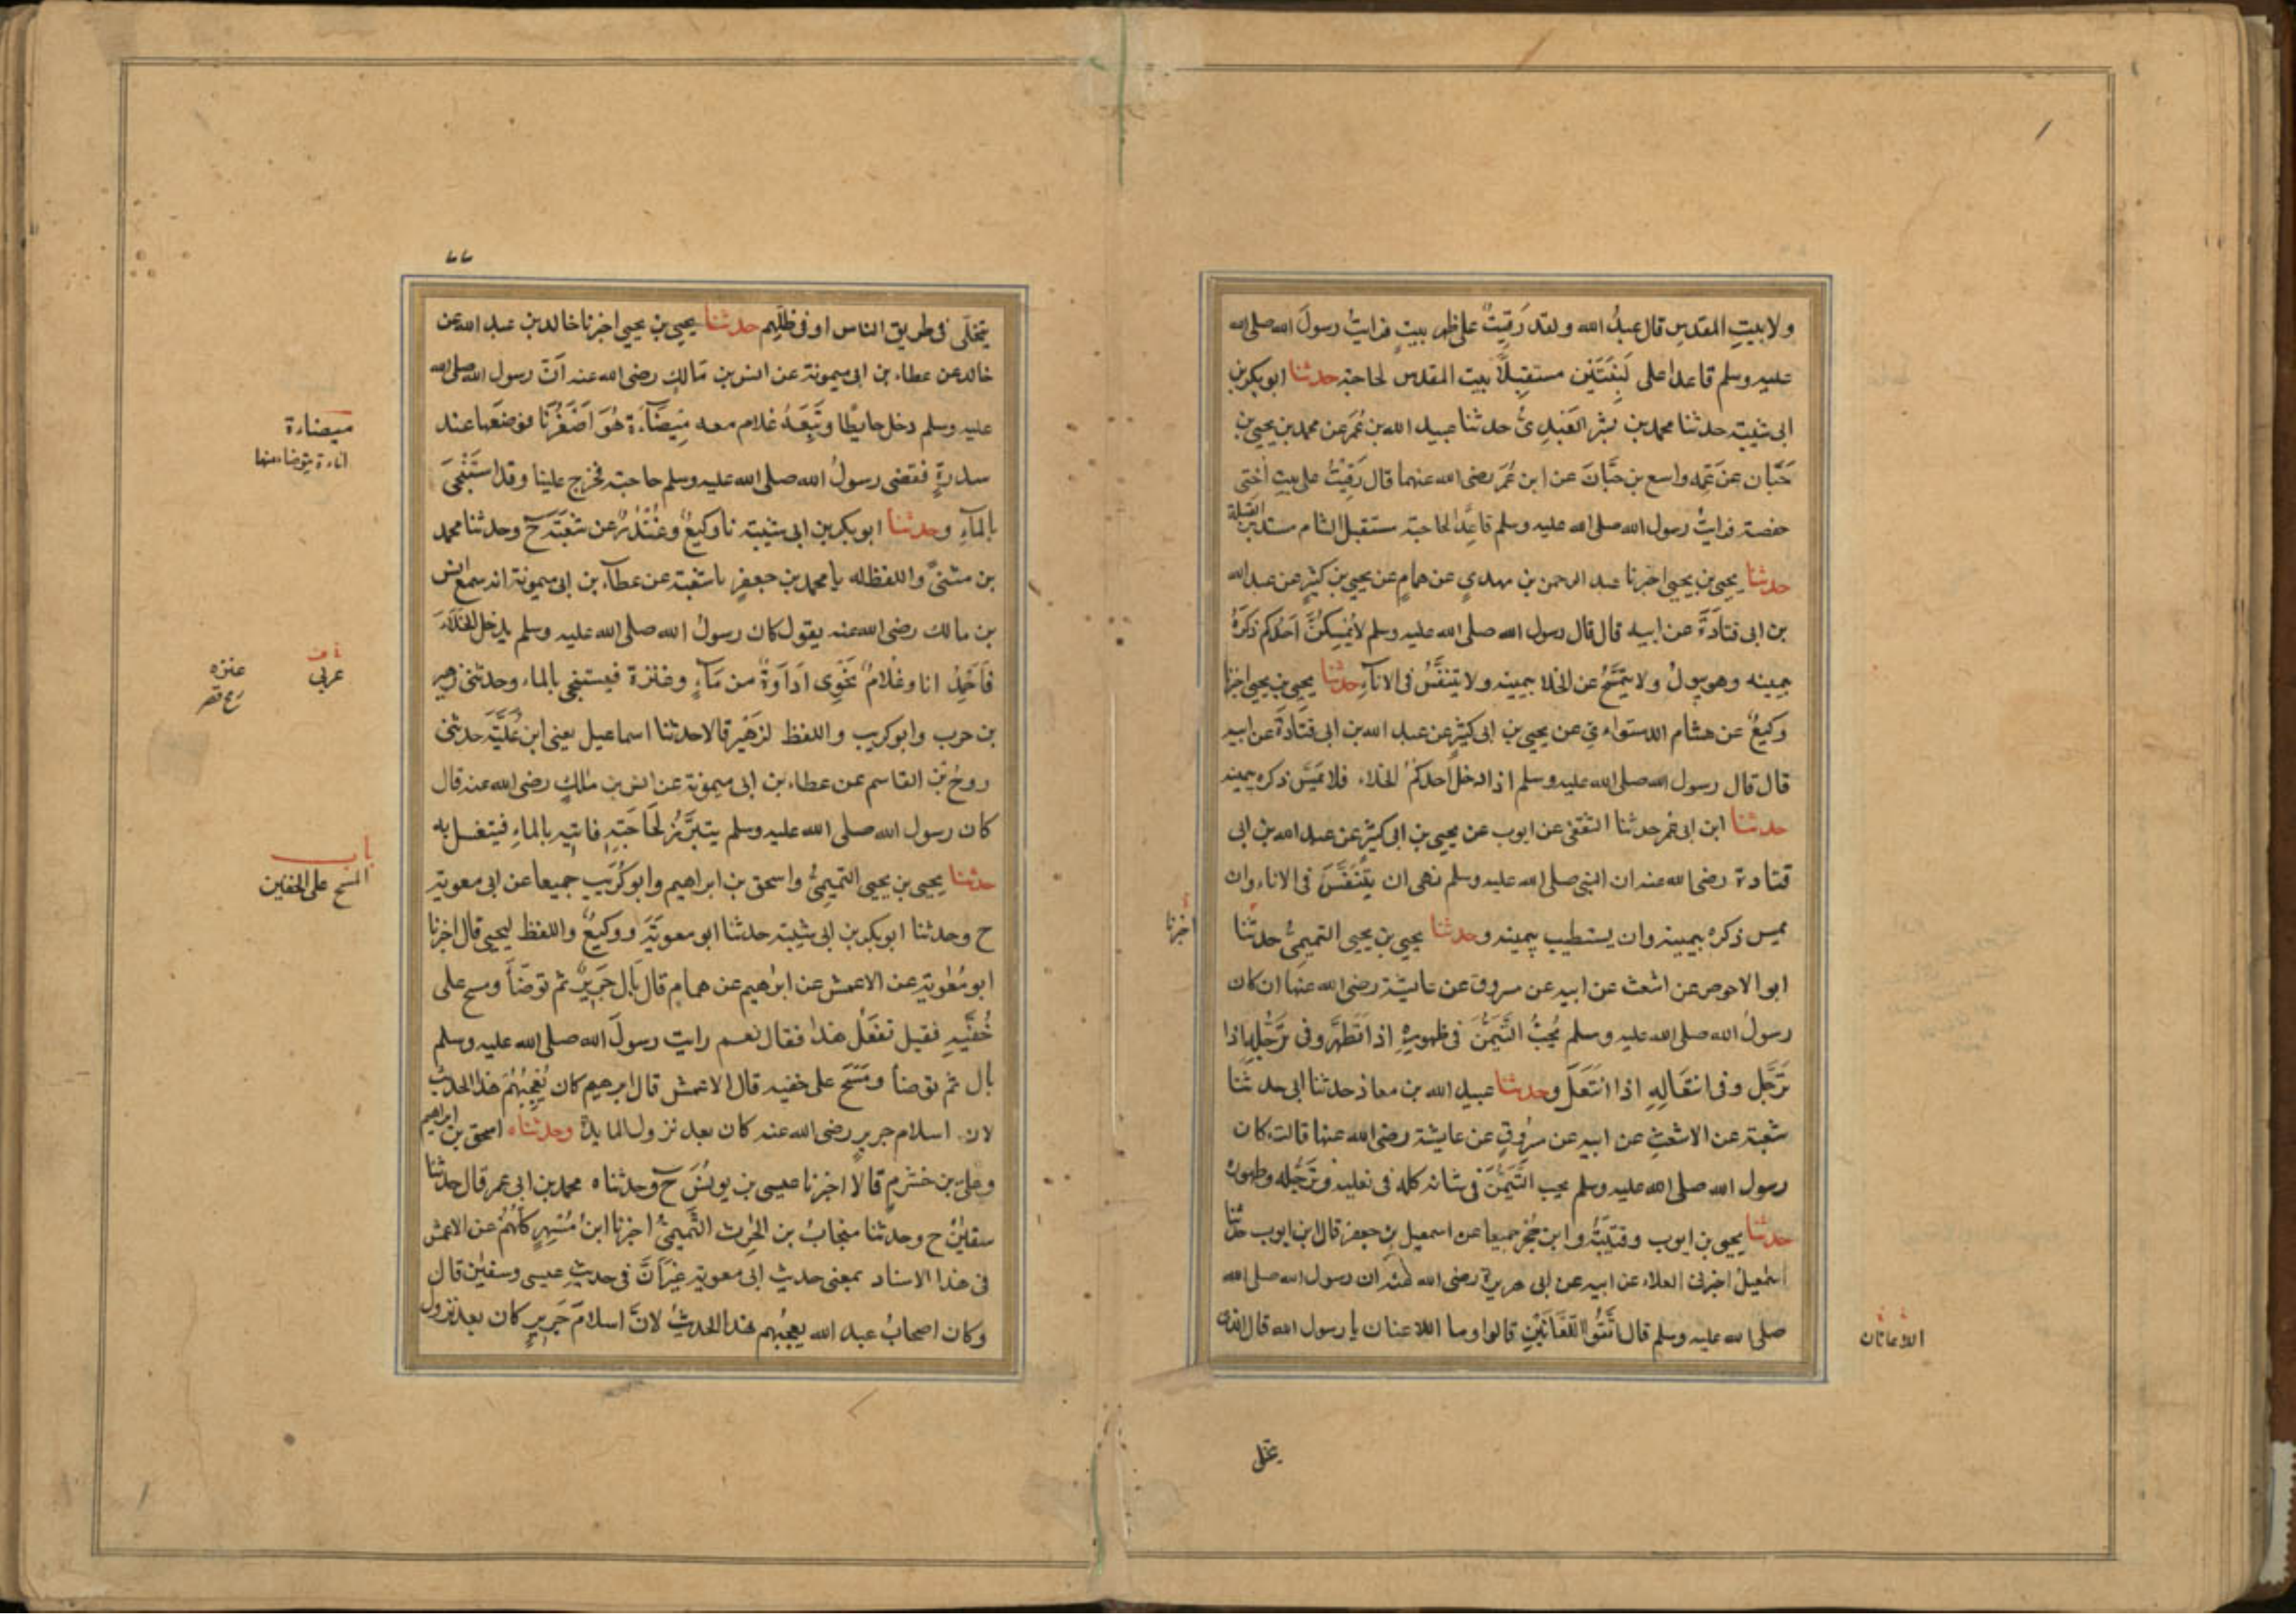 ولا بيتِ المقدسِ قال عبدُ الله ولقد رَقِيتُ على ظهر بيتٍ فرايتُ رسولَ الله صلى الله
عليه وسلم قاعدا على لَبِنَتَيْن مستقبِلاً بيت المقدس لحاجته حدثنا ابو بكر بن
ابى شيبة حدثنا محمد بن بشر العَبْدِىُّ حدثنا عبيد الله بن عُمَر عن محمد بن يحيى بن
حَبَّان عن عَمِّه واسع بن حَبَّانَ عن ابن عُمَر رضى الله عنهما قال رَقِيْتُ على بيتِ اُختى
حفصة فرايتُ رسول الله صلى الله عليه وسلم قاعِدًا لحاجته مستقبل الشام مستدبر القبلة
حدثنا يحيى بن يحيى اخبرنا عبد الرحمن بن مهدىٍ عن همامٍ عن يحيى بن كثيرٍ عن عبد الله
بن ابى قتادَةَ عن ابيه قال قال رسول الله صلى الله عليه وسلم لا يُمْسِكَنَّ اَحَدُكم ذَكَرَهُ
بيمينه وهو يبولُ ولا يتمَسَّحُ عن الخلا بيمينه ولا يتنَفَّسُ فى الاناءِ حدثنا يحيى بن يحيى اخبرنا
وكيعٌ عن هشام الدستواءى عن يحيى بن ابى كثيرٍ عن عبد الله بن ابى قتادَةَ عن ابيه
قال قال رسول الله صلى الله عليه وسلم اذا دخل احدكمُ الخلاء فلا يَمَسَّ ذكره بيمينه
حدثنا ابن ابى عمر حدثنا الثقفى عن ايوب عن يحيى بن ابى كثيرٍ عن عبد الله بن ابى
قتادة رضى الله عنه ان النبى صلى الله عليه وسلم نهى ان يَتَنَفَّسَ فى الاناء وان
يمس ذكره بيمينه وان يستطيب بيمينه وحدثنا يحيى بن يحيى التميمىُّ حدثنا
اخبرنا
ابو الاحوص عن اشعث عن ابيه عن مسروق عن عايشة رضى الله عنها ان كان
رسولُ الله صلى الله عليه وسلم يُحِبُّ التَّيَمُّنَ فى طهورِهِ اذا تَطَهَّر وفى تَرَجُّلِهِ اذا
تَرَجَّل وفى انتعَالِهِ اذا انتَعَلَ وحدثنا عبيد الله بن معاذ حدثنا ابى حدثنا
شعبة عن الاشعثِ عن ابيه عن مسروقٍ عن عايشة رضى الله عنها قالت كان
رسول الله صلى الله عليه وسلم يحب التَّيَمُّنَ فى شانه كله فى نعليه وتَرَجُّلِه وطهوره
حدثنا يحيى بن ايوب وقتيبَةُ وابن حُجْرٍ جميعا عن اسمعيل بن جعفر قال ابن ايوب حدثنا
اسمعيلُ اخبرنى العلاء عن ابيه عن ابى هريرة رضى الله عنه ان رسول الله صلى الله
صلى الله عليه وسلم قال اتَّقُوا اللَّعَّانَيْنِ قالوا وما اللاعنان يا رسول الله قال الذى
اللاعنان
يتخلى
يتخَلّى فى طريق الناس او فى ظلِّهم حدثنا يحيى بن يحيى اخبرنا خالد بن عبد الله عن
خالد عن عطاء بن ابى ميمونة عن انس بن مَالكٍ رضى الله عنه اَنّ رسول الله صلى الله
عليه وسلم دخل حايطًا وتَبِعَهُ غلام معه مِيْضَاءَة هُوَ اَصْغَرُنَا فوضعَها عند
ميضاءة
اناءة يتوضا منها
سدرةٍ فقضى رسولُ الله صلى الله عليه وسلم حاجته فخرج علينا وقد استَنْجَى
بالماءِ وحدثنا ابو بكر بن ابى شيبة نا وكيعٌ وغُنْدَرٌ عن شعبَةَ ح وحدثنا محمد
بن مثنىَّ واللفظ له نا محمد بن جعفرٍ نا شعبة عن عطاء بن ابى ميمونة انه سمع انس
بن مالك رضى الله عنه يقول كان رسولُ الله صلى الله عليه وسلم يدخل الخَلاَءَ
فاَحْمِلُ انا وغلامٌ نَحْوِى اَدَاوَةً من مَاءٍ وعَنَزة فيستنجى بالماء وحدثنى زهير
عربى
عنزه
بن حرب وابو كريب واللفظ لزهَيْر قالا حدثنا اسماعيل يعنى ابن عُلَيَّةَ حدثنى
روحُ بْن القاسم عن عطاء بن ابى ميمونة عن انس بن مٰلكٍ رضى الله عنه قال
كان رسول الله صلى الله عليه وسلم يتبَرَّزُ لحَاجَتِهِ فاتيِهِ بالماءِ فيتغسل به
باب
المسح على الخفين
حدثنا يحيى بن يحيى التميمِىُّ واسحق بن ابراهيم وابو كُرَيْبٍ جميعا عن ابى معوية
ح وحدثنا ابو بكر بن ابى شيبة حدثنا ابو معوِيَةَ ووكيعٌ واللفظ ليحيى قال اخبرنا
ابو مُعٰوية عن الاعمش عن ابرهيم عن همامٍ قال بَالَ جَرِيرٌ ثم توضَّأ ومسح على
خُفَّيْهِ فقيل تفعَلُ هذا فقال نعم رايت رسولَ الله صلى الله عليه وسلم
بال ثم توضأ ومَسَحَ على خفيه قال الاعمش قال ابرهيم كان يُعْجِبُهُمْ هذا الحديثُ
لان اسلام جريرٍ رضى الله عنه كان بعد نزول المايدة وحدثناه اسحق بن ابراهيم
وعلى بن خشرمٍ قالا اخبرنا عيسى بن يونسَ ح وحدثناه محمد بن ابى عمر قال حدثنا
سفينُ ح وحدثنا منجابُ بن الحٰرث التَّميمىُّ اخبرنا ابنُ مُسْهِرٍ كلُّهُمْ عن الاعمش
فى هذا الاسناد بمعنى حديث ابى معوية غيرَ اَنَّ فى حديثِ عيسى وسفين قال
وكان اصحابُ عبد الله يعجبُهم هذا الحديثُ لانَّ اسلامَ جَرِيرٍ كان بعد نزول